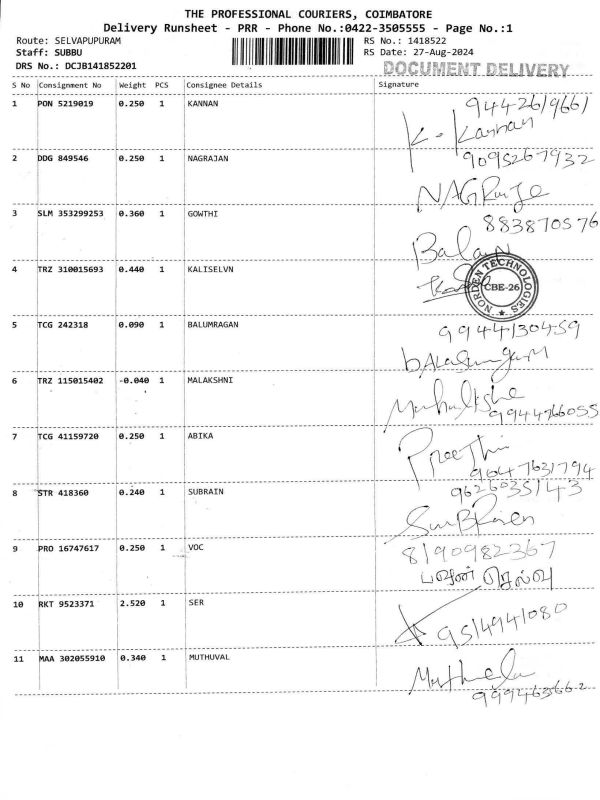 THE PROFESSIONAL COURIERS, COIMBATORE
Delivery Runsheet - PRR - Phone No.:0422-3505555 - Page No.:1
Route: SELVAPUPURAM RS No.: 1418522
Staff: SUBBU RS Date: 27-Aug-2024
DRS No.: DCJB141852201 DOCUMENT DELIVERY
S No Consignment No Weight PCS Consignee Details Signature
1 PON 5219019 0.250 1 KANNAN 9442619661
K. Kannan
2 DDG 849546 0.250 1 NAGRAJAN 9095267932
3 SLM 353299253 0.360 1 GOWTHI 883870576
Balan
4 TRZ 310015693 0.440 1 KALISELVN
NORDEN TECHNOLOGIES
CBE-26
5 TCG 242318 0.090 1 BALUMRAGAN 9944130459
6 TRZ 115015402 -0.040 1 MALAKSHNI
9944766055
7 TCG 41159720 0.250 1 ABIKA Preethi
9047631794
8 STR 418360 0.240 1 SUBRAIN 9626035143
9 PRO 16747617 0.250 1 VOC 8190982367
10 RKT 9523371 2.520 1 SER
9514941080
11 MAA 302055910 0.340 1 MUTHUVAL